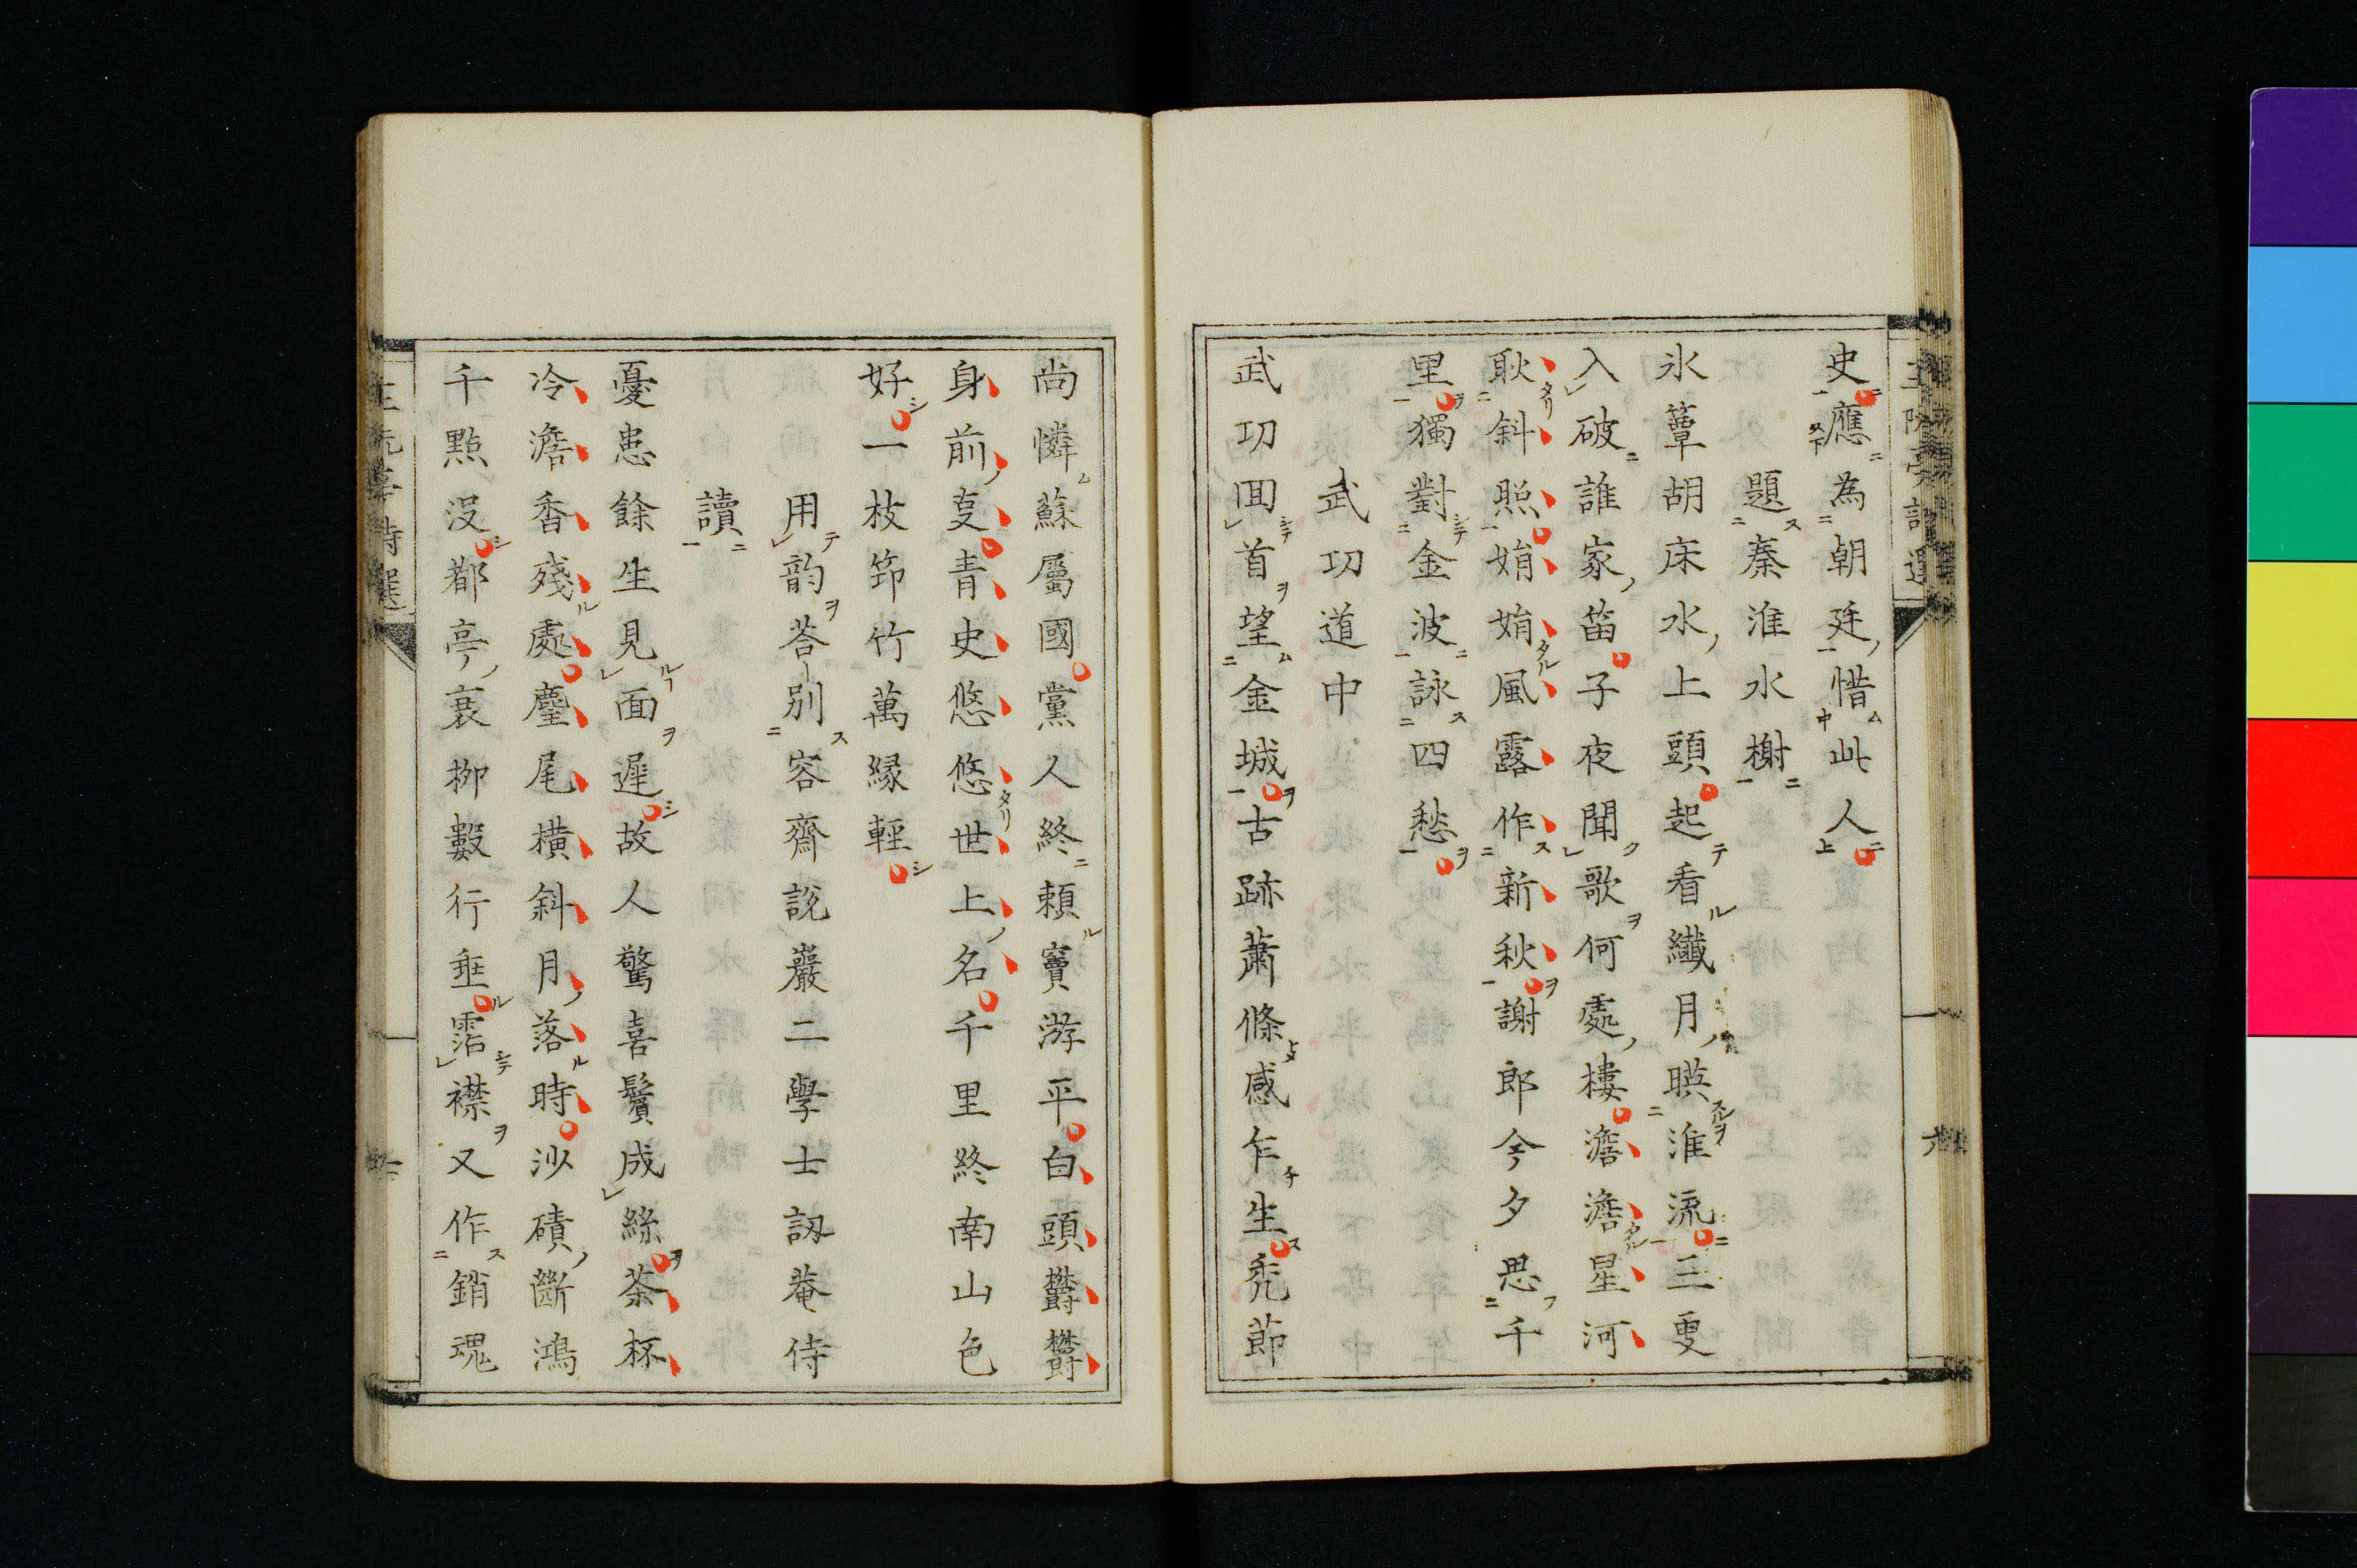 史應為朝廷惜此人
題秦淮水榭
氷簟胡床水上頭起看纎月暎淮流三更
入破誰家笛子夜聞歌何處樓澹澹星河
耿斜照娟娟風露作新秋謝郎今夕思千
里獨對金波詠四愁
武功道中
武功回首望金城古跡蕭條感乍生禿節
尚憐蘇屬國黨人終賴竇游平白頭欝欝
身前㕝青史悠悠世上名千里終南山色
好一枝笻竹萬縁輕
用韵荅別容齋說巖二學士訒菴侍
讀
憂患餘生見面遲故人驚喜鬢成絲茶杯
冷澹香殘處麈尾橫斜月落時沙磧斷鴻
千點沒都亭衰柳數行垂霑襟又作銷魂